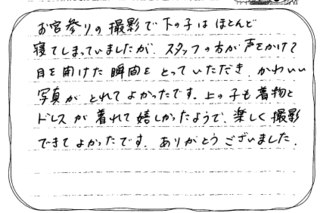 お宮参りの撮影で下の子はほとんど
寝てしまっていましたが、スタッフの方が声をかけて
目を開けた瞬間をとっていただき、かわいい
写真がとれてよかったです。上の子も着物と
ドレスが着れて嬉しかったようで、楽しく撮影
できてよかったです。ありがとうございました。